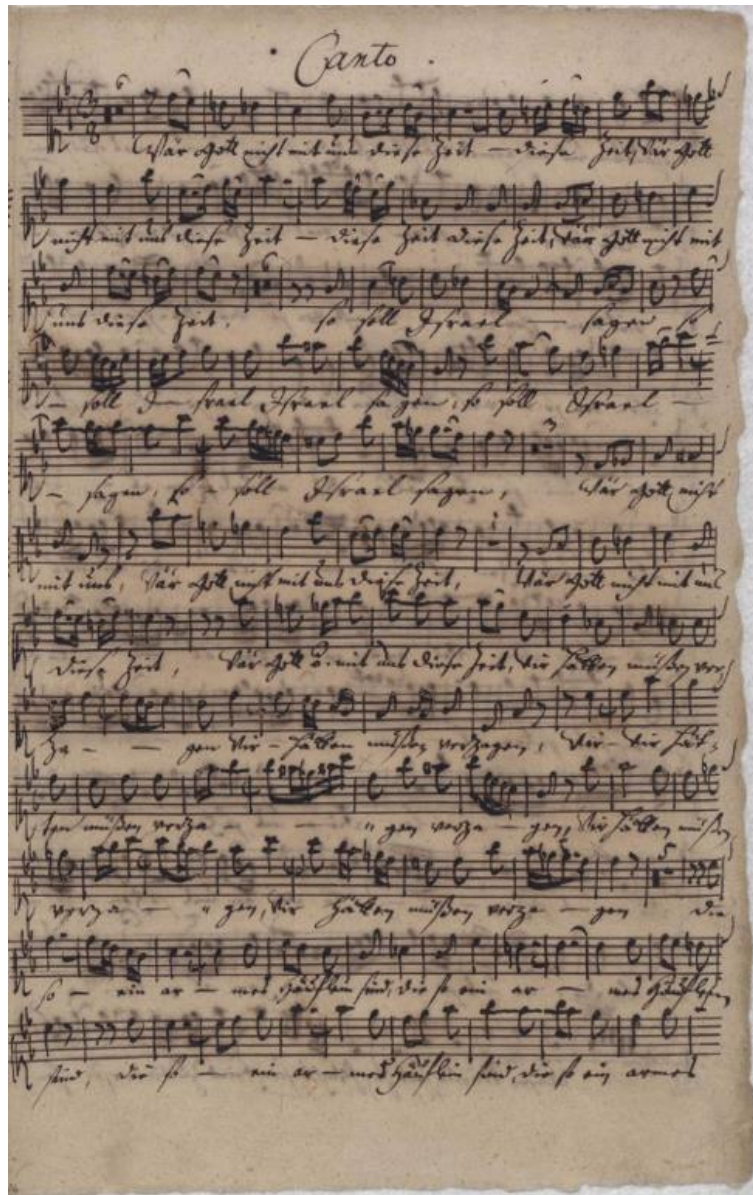 Canto.
Wär Gott nicht mit uns diese Zeit — diese Zeit, Wär Gott
nicht mit uns diese Zeit — diese Zeit diese Zeit, wär Gott nicht mit
uns diese Zeit. so soll Israel — sagen so
— soll I — srael Israel sagen, so soll Israel —
— sagen, so — soll Israel sagen, wär Gott nicht
mit uns, Wär Gott nicht mit uns diese Zeit, Wär Gott nicht mit uns
diese Zeit, Wär Gott mit uns diese Zeit, wir hätten müßen ver
za — — gen wir — hätten müßen verzagen, wir — wir hät-
ten müßen verza — — — gen verza — gen, wir hätten müßen
verza — — gen, wir hätten müßen verza — gen die
so — ein ar — mes Häuflein sind, die so ein ar — mes Häuflein
sind, die so — ein ar — mes Häuflein sind, die so ein armes